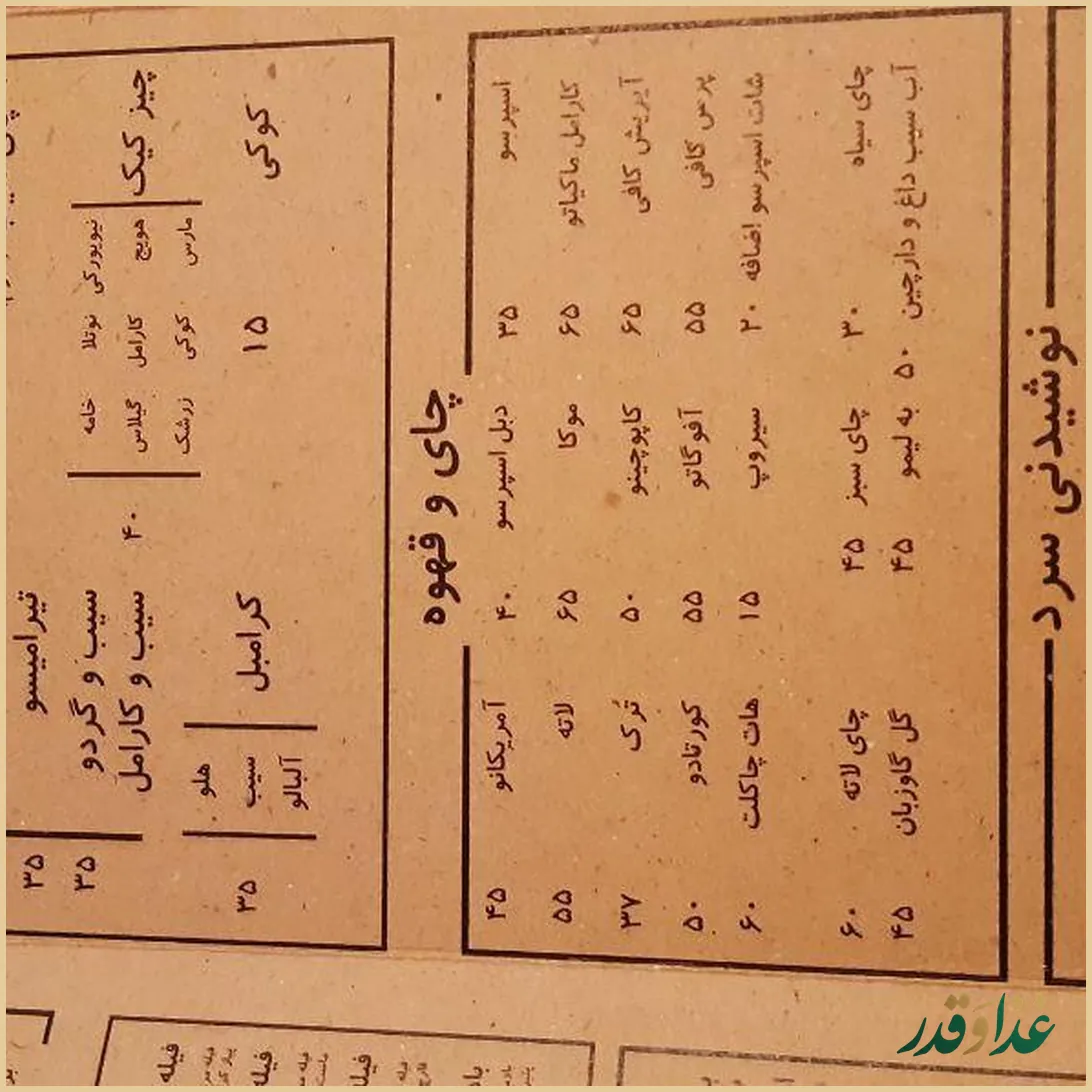 تیرامیسو ۳۵
نیویورکی نوتلا خامه سیب و گردو ۳۵
چیز کیک هویج کارامل گیلاس ۴۰ سیب و کارامل
مارس کوکی زرشک
هلو
کوکی ۱۵ کرامبل سیب ۳۵
آلبالو
چای و قهوه
اسپرسو ۳۵ دبل اسپرسو ۴۰ آمریکانو ۴۵
کارامل ماکیاتو ۶۵ موکا ۶۵ لاته ۵۵
آیریش کافی ۶۵ کاپوچینو ۵۰ تُرک ۳۷
پرس کافی ۵۵ آفوگاتو ۵۵ کورتادو ۵۰
شات اسپرسو اضافه ۲۰ سیروپ ۱۵ هات چاکلت ۶۰
چای سیاه ۳۰ چای سبز ۴۵ چای لاته ۶۰
آب سیب داغ و دارچین ۵۰ به لیمو ۴۵ گل گاوزبان ۴۵
نوشیدنی سرد
فیله
فیله
فیله
غذا و قدر